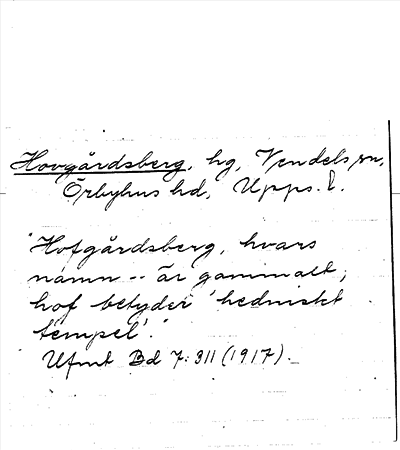 Hovgårdsberg, hg, Vendels sn,
Örbyhus hd, Upps. l.
"Hofgårdsberg, hvars
namn -- är gammalt;
hof betyder 'hedniskt
tempel'."
Ufmt Bd 7: 311 (1917).